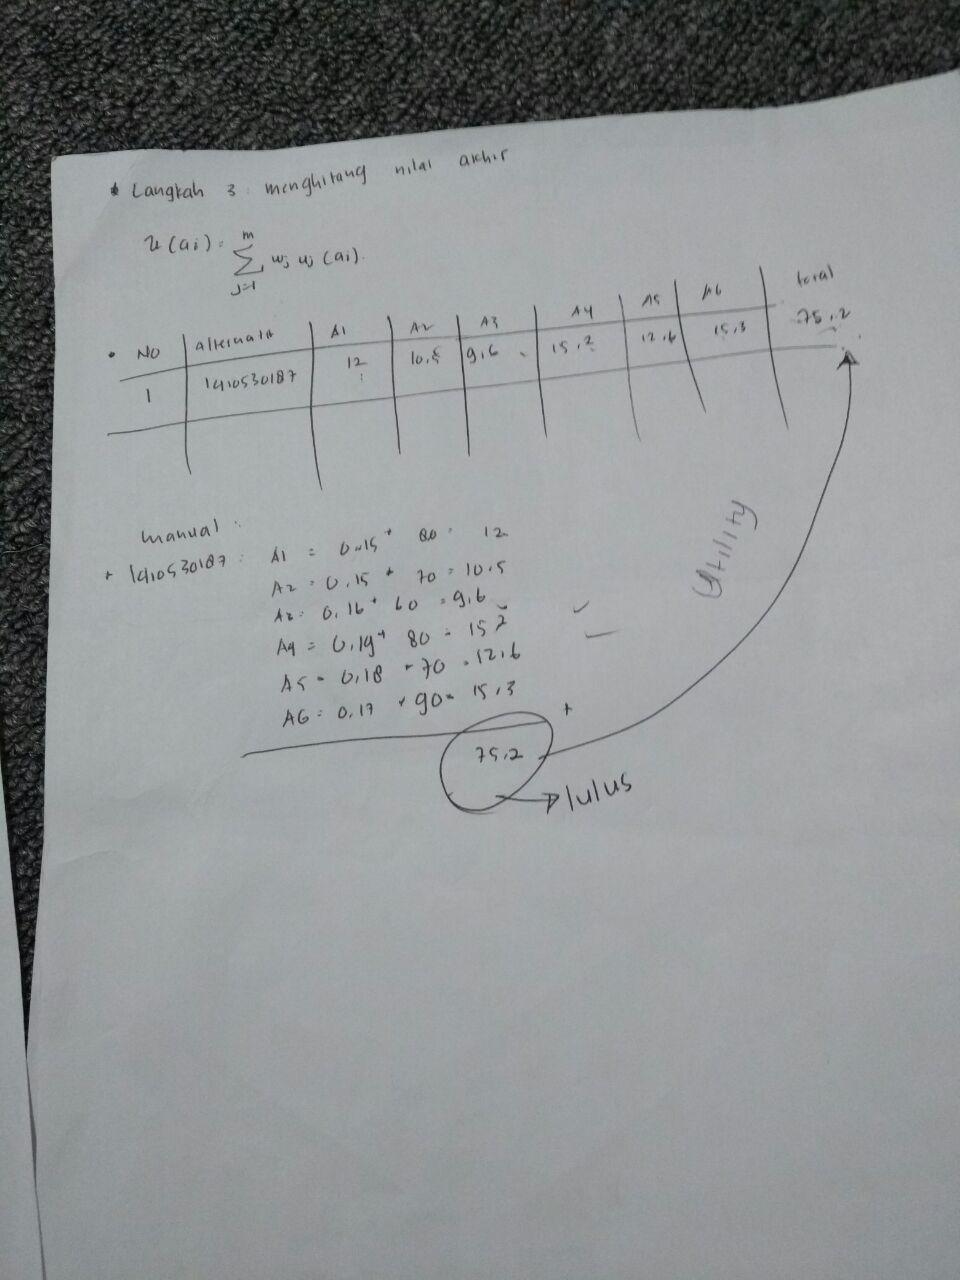 * Langkah 3 : menghitung nilai akhir
u(ai) = m∑j=1 wj uj (ai).
• No | alternatif | A1 | A2 | A3 | A4 | A5 | A6 | total
1 | 1410530187 | 12 | 10,5 | 9,6 | 15,2 | 12,6 | 15,3 | 75,2
manual :
+ 1410530187 : A1 = 0,15 * 80 = 12
A2 = 0,15 * 70 = 10,5
A3 = 0,16 * 60 = 9,6
A4 = 0,19 * 80 = 15,2
A5 = 0,18 * 70 = 12,6
A6 = 0,17 * 90 = 15,3
+
75,2
lulus
Utility